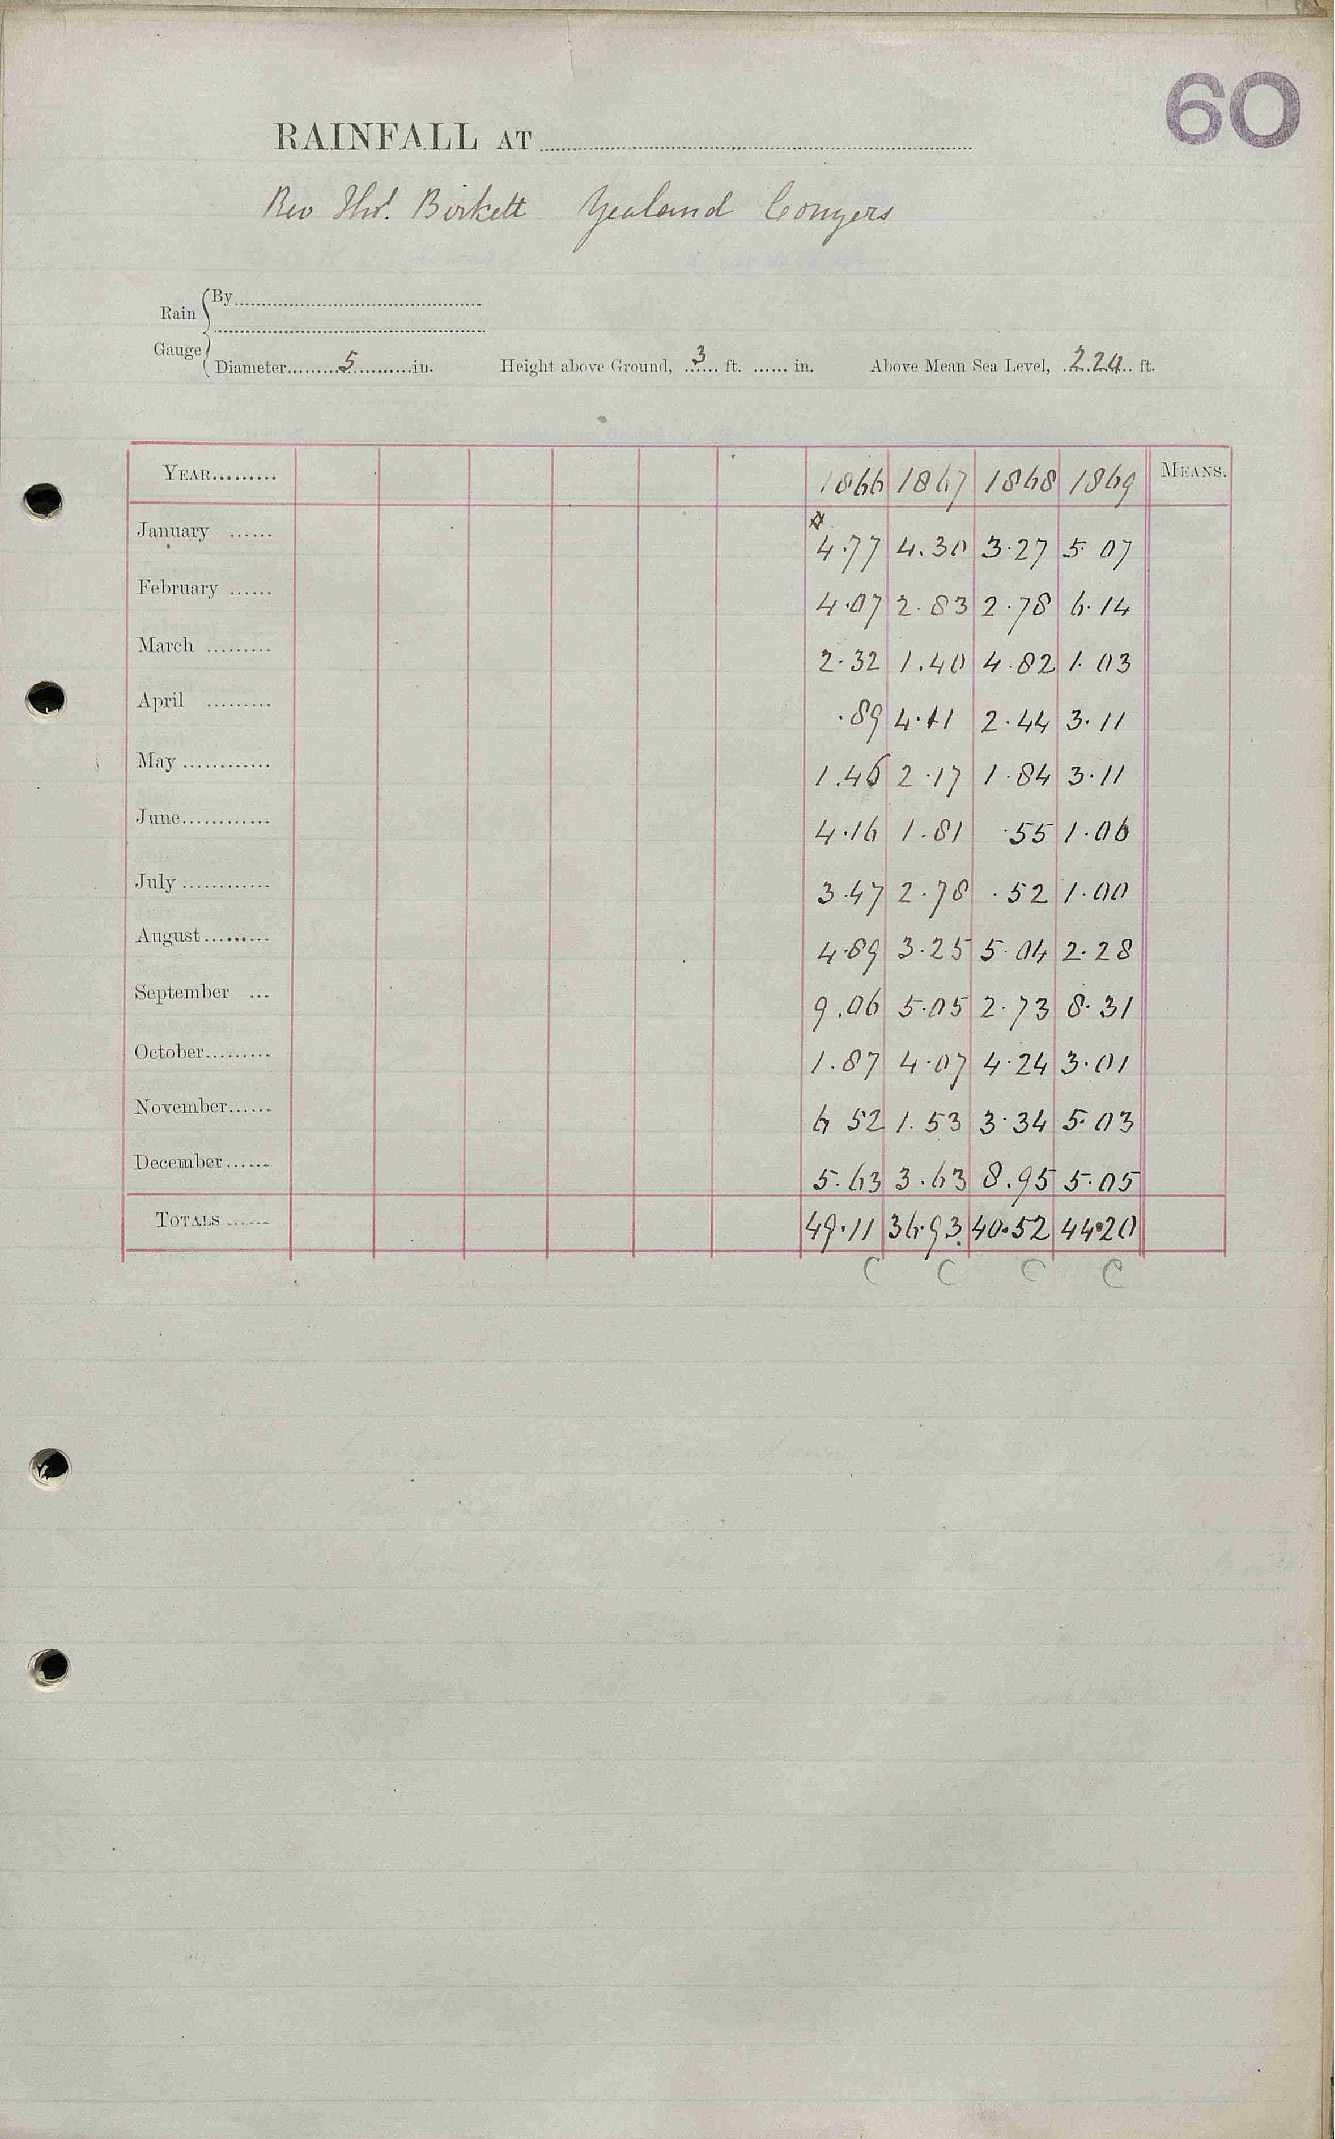 60
RAINFALL AT
Rev Thos. Birkett Yealand Conyers
Rain Gauge
By
Diameter 5 in. Height above Ground, 3 ft. in. Above Mean Sea Level, 224 ft.
YEAR 1866 1867 1868 1869 MEANS.
January 4.77 4.30 3.27 5.07
February 4.07 2.83 2.78 6.14
March 2.32 1.40 4.82 1.03
April .89 4.11 2.44 3.11
May 1.46 2.17 1.84 3.11
June 4.16 1.81 .55 1.06
July 3.47 2.78 .52 1.00
August 4.89 3.25 5.04 2.28
September 9.06 5.05 2.73 8.31
October 1.87 4.07 4.24 3.01
November 6 52 1.53 3.34 5.03
December 5.63 3.63 8.95 5.05
TOTALS 49.11 36.93 40.52 44.20
C C C C